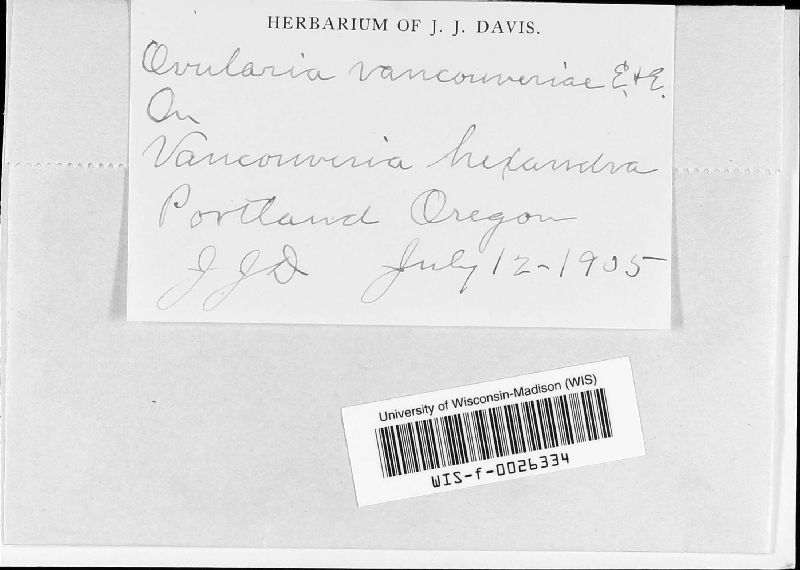 HERBARIUM OF J. J. DAVIS.
Ovularia vancouveriae E. & E.
On
Vancouveria hexandra
Portland Oregon
J J D July 12-1905
University of Wisconsin-Madison (WIS)
WIS-f-0026334